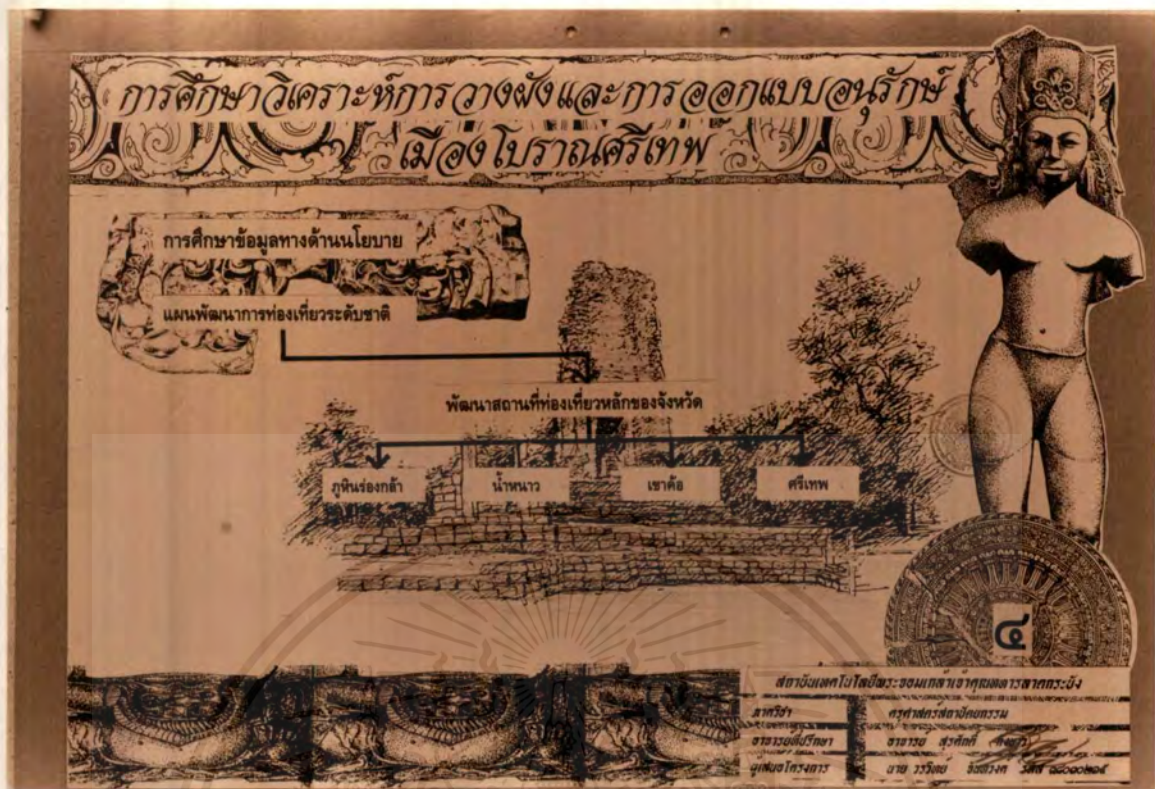 การศึกษาวิเคราะห์การวางผังและการออกแบบอนุรักษ์
เมืองโบราณศรีเทพ
การศึกษาข้อมูลทางด้านนโยบาย
แผนพัฒนาการท่องเที่ยวระดับชาติ
พัฒนาสถานที่ท่องเที่ยวหลักของจังหวัด
ภูหินร่องกล้า น้ำหนาว เขาค้อ ศรีเทพ
๔
สถาบันเทคโนโลยีพระจอมเกล้าเจ้าคุณทหารลาดกระบัง
ภาควิชา ครุศาสตร์สถาปัตยกรรม
อาจารย์ที่ปรึกษา อาจารย์ สุรศักดิ์
ผู้เสนอโครงการ นาย วรวิทย์ รหัส